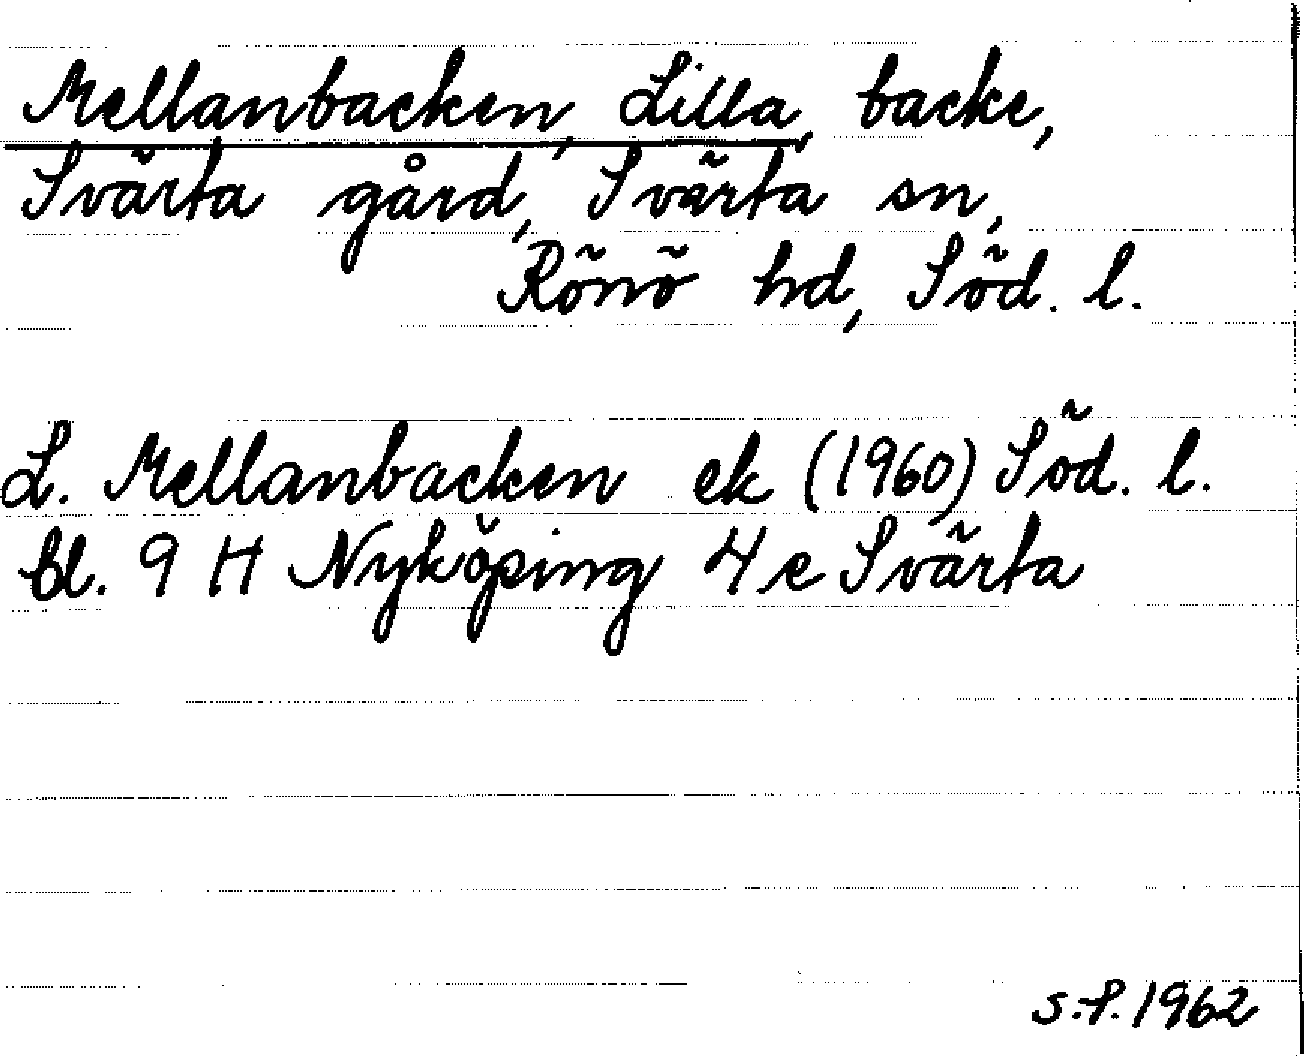 Mellanbacken, Lilla, backe,
Svärta gård, Svärta sn,
Rönö hd, Söd. l.
L. Mellanbacken ek (1960) Söd. l.
bl. 9 H Nyköping 4 e Svärta
S.P. 1962